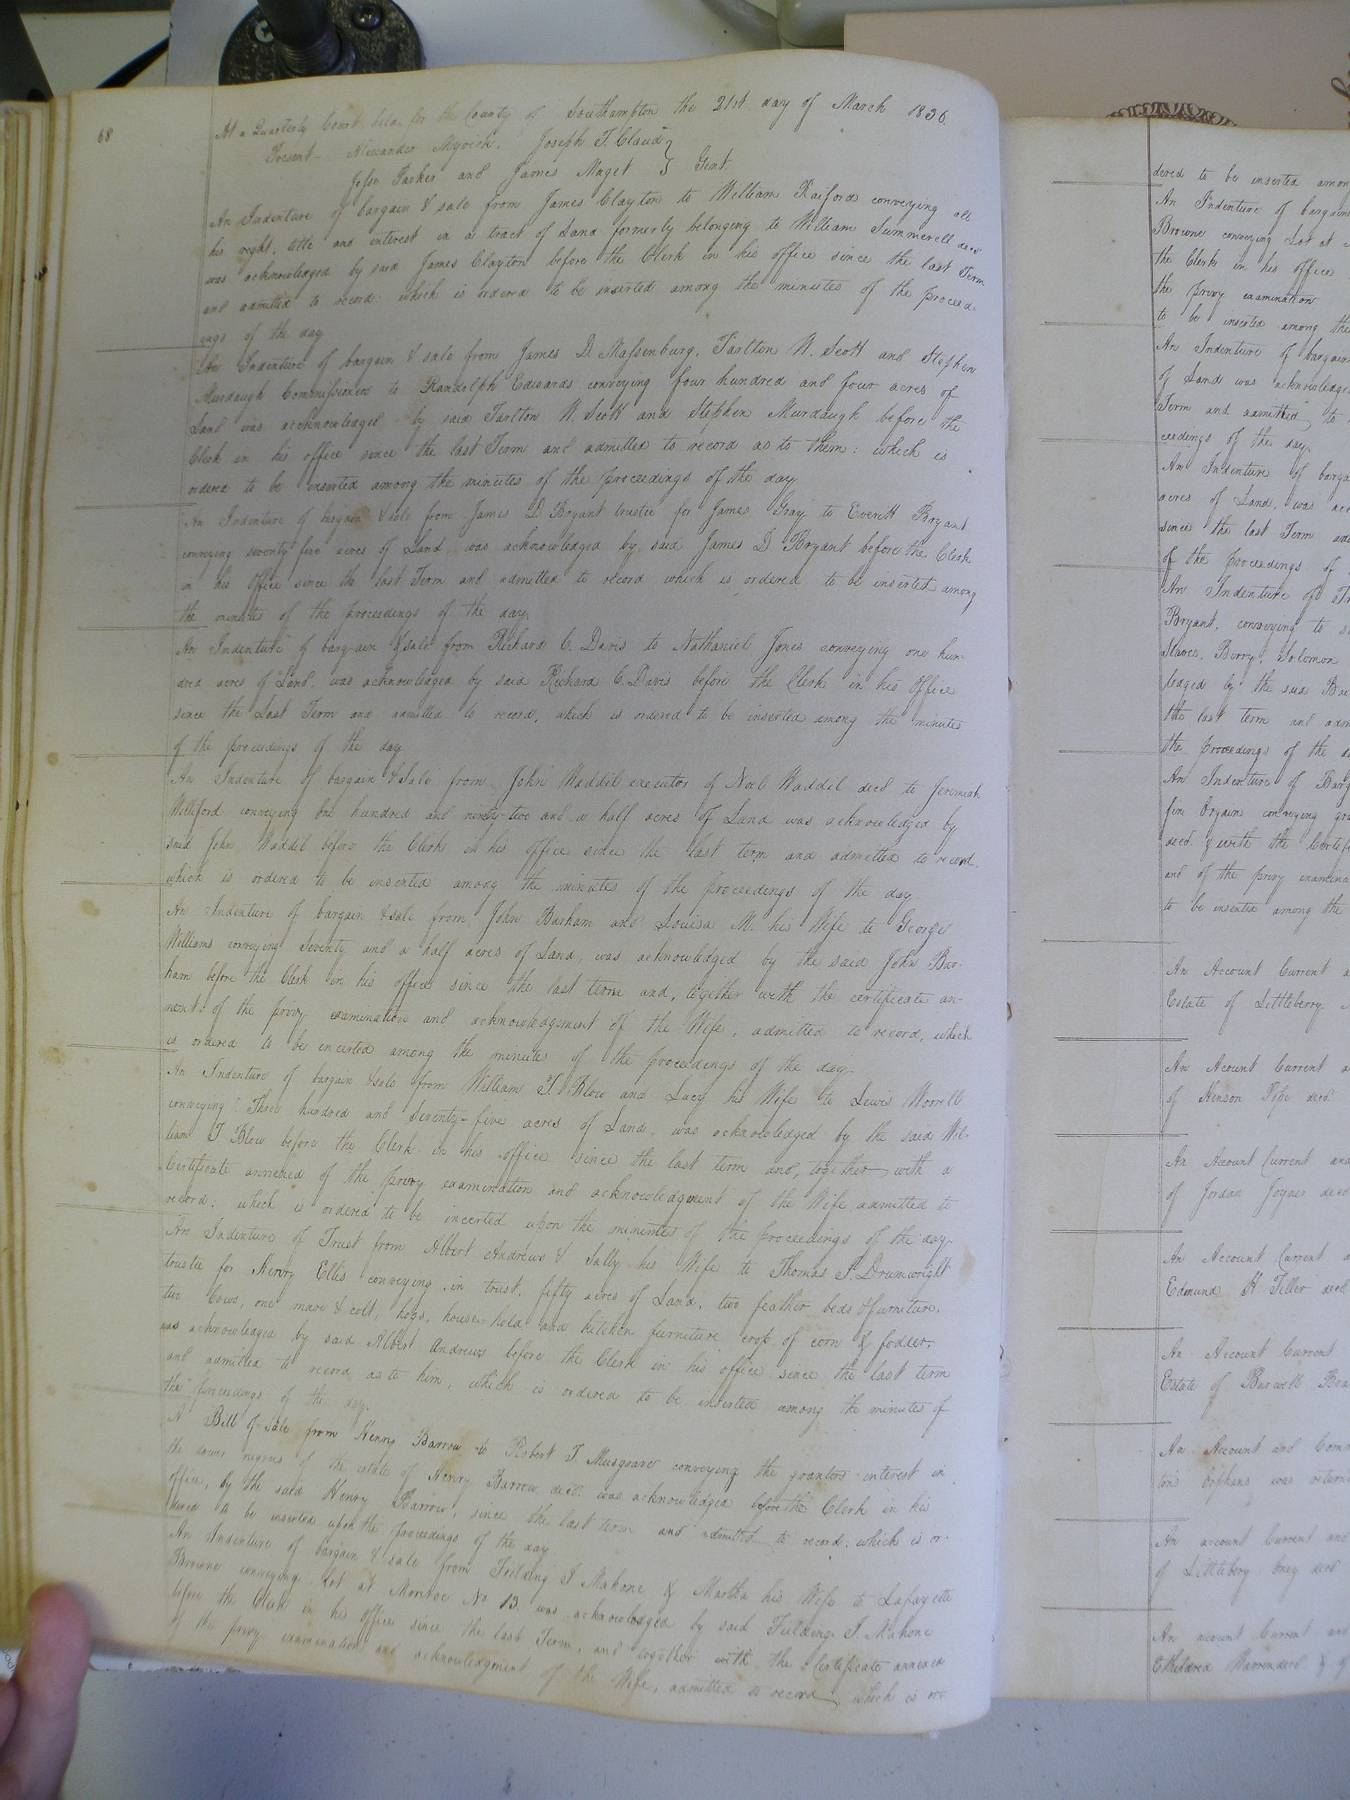 68
At a Quarterly Court held for the County of Southampton the 21st day of March 1836.
Present Alexander Myrick, Joseph T. Claud
Jesse Parker and James Maget Gent.
An Indenture of bargain & sale from James Clayton to William Raiford conveying all
his right, title and interest in a tract of Land formerly belonging to William Summerell decd
was acknowledged by said James Clayton before the Clerk in his office since the last Term
and admitted to record: which is ordered to be inserted among the minutes of the proceed-
ings of the day
An Indenture of bargain & sale from James D. Massenburg, Tarlton W. Scott and Stephen
Murdaugh Commissioners to Randolph Edwards conveying four hundred and four acres of
Land was acknowledged by said Tarlton W. Scott and Stephen Murdaugh before the
Clerk in his office since the last Term and admitted to record as to them: which is
ordered to be inserted among the minutes of the proceedings of the day
An Indenture of bargain & sale from James D Bryant trustee for James Gray to Everitt Bryant
conveying seventy five acres of Land was acknowledged by said James D Bryant before the Clerk
in his Office since the last Term and admitted to record which is ordered to be inserted among
the minutes of the proceedings of the day
An Indenture of bargain & sale from Richard C. Davis to Nathaniel Jones conveying one hun-
dred acres of Land, was acknowledged by said Richard C. Davis before the Clerk in his Office
since the Last Term and admitted to record, which is ordered to be inserted among the minutes
of the proceedings of the day
An Indenture of bargain & Sale from John Waddil executor of Noel Waddil decd to Jeremiah
Williford conveying One hundred and ninety-two and a half acres of Land was acknowledged by
said John Waddil before the Clerk in his office since the last term and admitted to record
which is ordered to be inserted among the minutes of the proceedings of the day
An Indenture of bargain & sale from John Barham and Louisa M. his Wife to George
Williams conveying Seventy and a half acres of Land, was acknowledged by the said John Bar-
ham before the Clerk in his office since the last term and, together with the certificate an-
nexed of the privy examination and acknowledgement of the Wife, admitted to record, which
is ordered to be incerted among the minutes of the proceedings of the day.
An Indenture of bargain & sale from William T. Blow and Lucy his Wife to Lewis Worrell
conveying Three hundred and Seventy-five acres of Land, was acknowledged by the said Wil-
liam T Blow before the Clerk in his office since the last term and, together with a
Certificate annexed of the privy examination and acknowledgment of the Wife admitted to
record: which is ordered to be incerted upon the minutes of the proceedings of the day.
An Indenture of Trust from Albert Andrews & Sally his Wife to Thomas S. Drumwright
trustee for Henry Ellis conveying, in trust, fifty acres of Land, two feather beds & furniture,
two Cows, one mare & colt, hogs, house-hold and kitchen furniture crop of corn & fodder,
was acknowledged by said Albert Andrews before the Clerk in his office since the last term
and admitted to record as to him, which is ordered to be inserted among the minutes of
the proceedings of the day.
A Bill of Sale from Henry Barrow to Robert T. Musgrave conveying the grantors interest in
the dower negroes of the estate of Henry Barrow decd. was acknowledged before the Clerk in his
office, by the said Henry Barrow, since the last term and admitted to record: which is or-
dered to be inserted upon the proceedings of the day
An Indenture of bargain & sale from Fielding J Mahone & Martha his Wife to Lafayette
Browne conveying Lot at Monroe No 13 was acknowledged by said Fielding J. Mahone
before the Clerk in his office since the last Term, and together with the Certificate annexed
of the privy examination and acknowledgment of the Wife, admitted to record, which is or-
dered to be inserted among
An Indenture of bargain
Browne conveying Lot at
the Clerk in his office
the privy examination
to be inserted among the
An Indenture of bargain
of Land was acknowledged
Term and admitted to
ceedings of the day
An Indenture of
acres of Land, was
since the last Term
of the proceedings of
An Indenture of
Bryant, conveying to
slaves, Berry, Solomon
ledged by the said
the last term and
the proceedings of the
An Indenture of
conveying
decd. & with the
and of the privy
to be inserted among the
An Account Current
Estate of Littleberry
An Acount Current
of Henson Pope decd.
An Account Current and
of Jordan Joyner decd
An Account Current
Edmund H Tiller decd
An Account Current
Estate of Burwell
An Account and
Orphans was
An account Current and
of Littleberry decd
An account Current and
Etheldred &